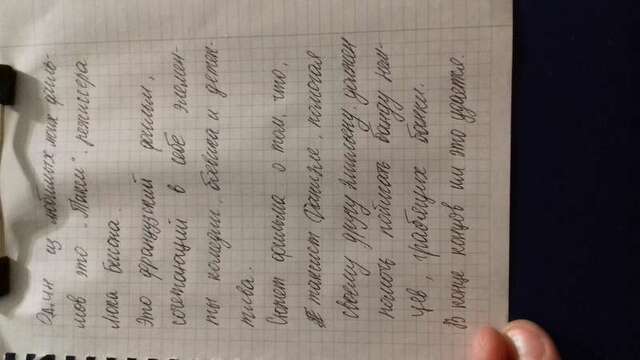 Один из любимых моих филь-
мов это „Такси". режиссера
Люка Бесона.
Это французский фильм,
сочетающий в себе элемен-
ты комедии, боевика и детек-
тива.
Сюжет фильма о том, что,
таксист Даниэле, помогая
своему другу Эмильену. должен
помочь поймать банду нем-
цев, грабящих банки.
В конце концов им это удается.